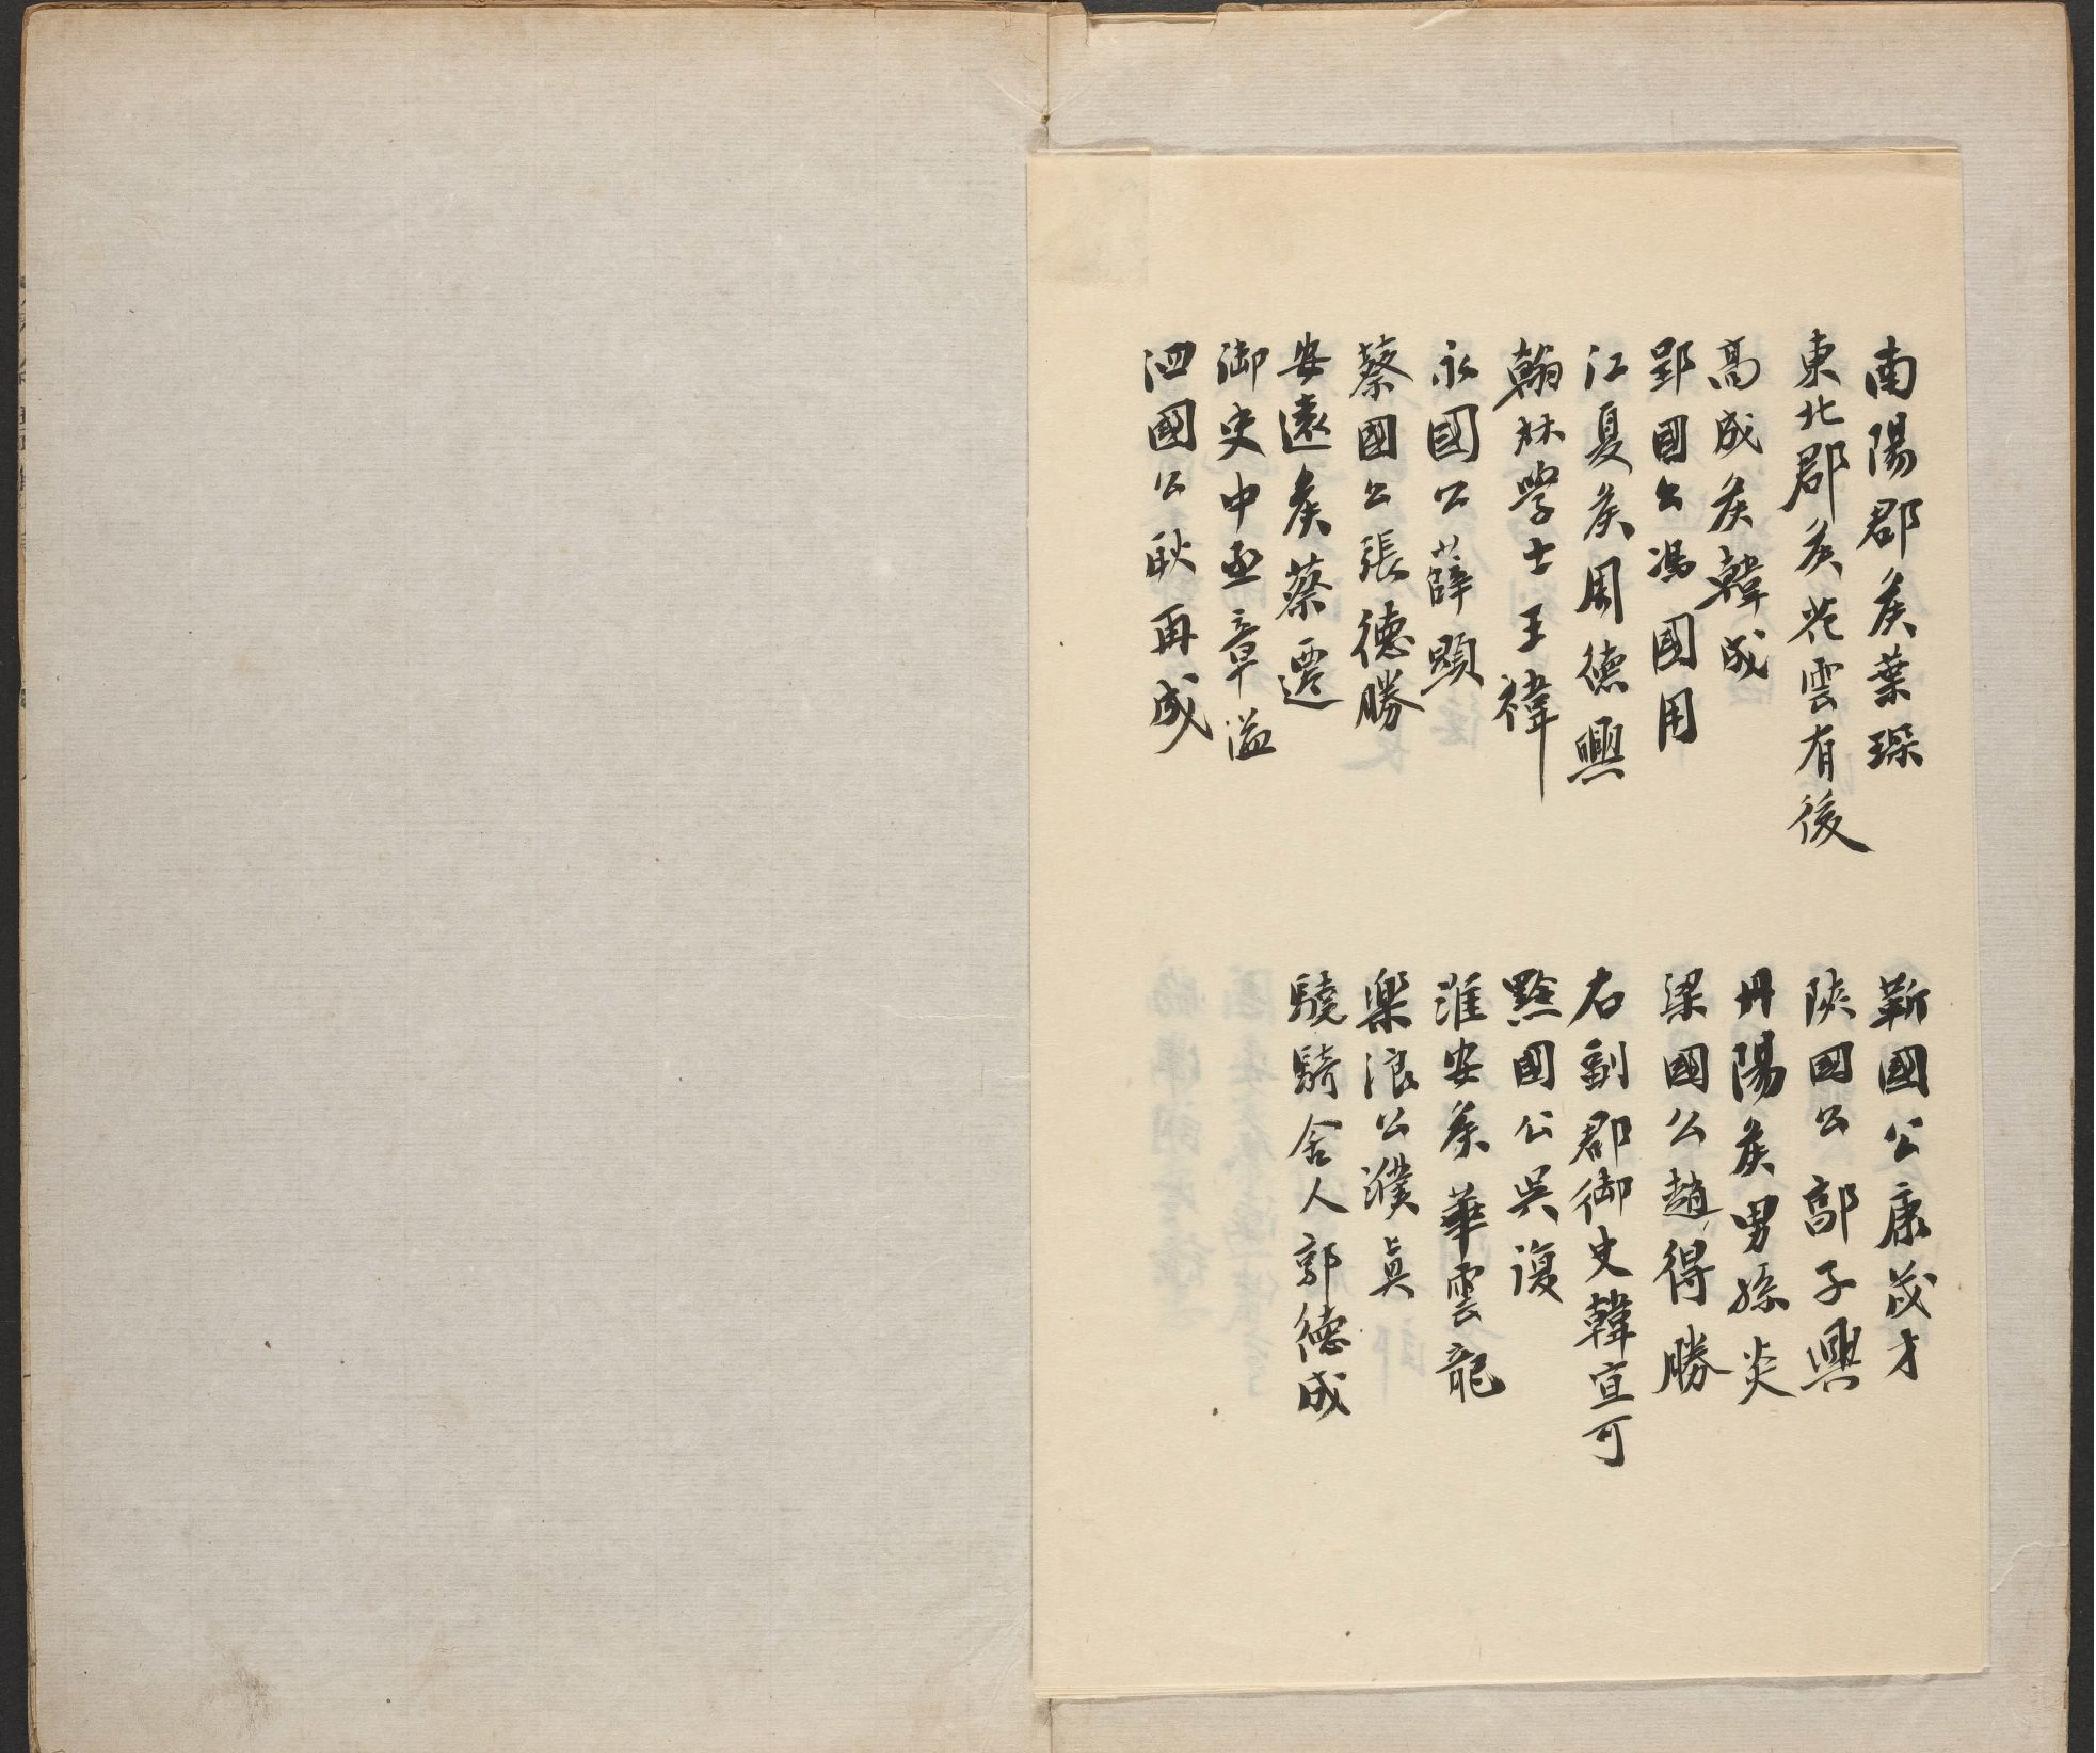 南陽郡矦葉琛
東北郡矦花雲有後
高成矦韓成
郢國公馮國用
江夏矦周德興
翰林學士王禕
永國公薛顯
蔡國公張德勝
安遠矦蔡遷
御史中丞章溢
泗國公耿再成
蘄國公康茂才
陝國公郭子興
丹陽矦男孫炎
梁國公趙得勝
右副郡御史韓宜可
黔國公吳復
淮安矦華雲龍
樂浪公濮真
驍騎舍人郭德成